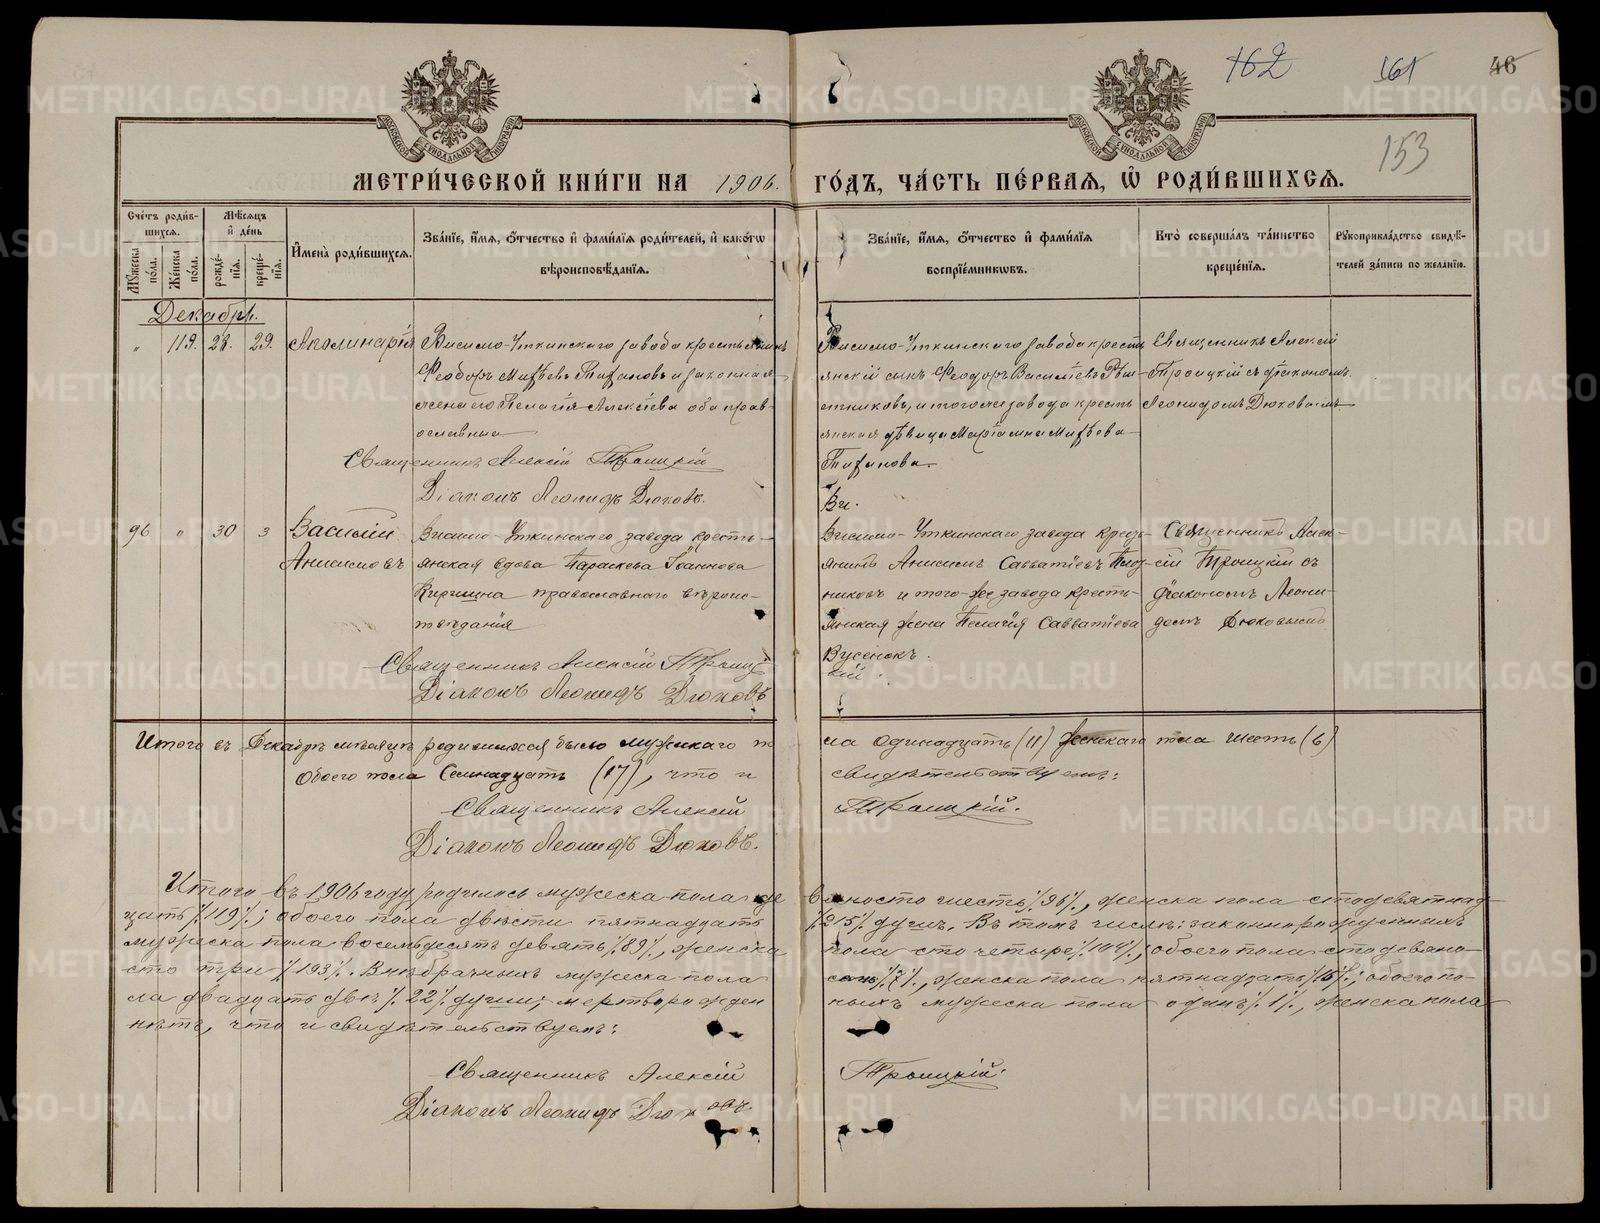 162
161
46
153
МЕТРИ́ЧЕСКОЙ КНИ́ГИ НА 1906. ГО́ДЪ, ЧА́СТЬ ПЕ́РВАЯ, Ѡ҆ РОДИ́ВШИХСЯ.
Сче́тъ роди́в-
шихся.
Мꙋ́жеска по́ла.
Же́нска по́ла.
Мѣ́сяцъ и҆ де́нь
рожде́-
нїя.
креще́-
нїя.
И҆мена̀ роди́вшихся.
Зва́нїе, и҆́мя, ѻ҆́тчество и҆ фами́лїя роди́телей, и҆ како́гѡ
вѣроисповѣ́данїя.
Зва́нїе, и҆́мя, ѻ҆́тчество и҆ фами́лїя
воспрїе́мникѡвъ.
Кто̀ соверша́лъ та́инство
креще́нїя.
Рꙋкоприкла́дство свидѣ́-
телей за́писи по жела́нїю.
Декабрь.
„ 119. 28. 29. Аполинарія
Висимо-Уткинскаго завода крестьянинъ
Феодоръ Матѳеевъ Типановъ и законная
жена его Пелагія Алексіева оба прав-
ославные
Священникъ Алексій Троицкій
Діаконъ Леонидъ Дюковъ.
Висимо-Уткинскаго завода кресть
янскій сынъ Феодоръ Василіевъ
и того же завода кресть
янская дѣвица Маріамна Матѳеева
Типанова.
Священникъ Алексій
Троицкій съ діакономъ
Леонидомъ Дюковымъ
Ви.
96 „ 30 3 Василій
Анисимовъ
Висимо-Уткинскаго завода кресть-
янская вдова Параскева Іоаннова
Киршина православнаго вѣроис-
повѣданія
Священникъ Алексій Троицкій
Діаконъ Леонидъ Дюковъ
Висимо-Уткинскаго завода крестъ-
янинъ Анисимъ Савватіевъ Плот-
никовъ и того-же завода кресть-
янская жена Пелагія Савватіева
Русенок
кій.
Священникъ Алек-
сій Троицкій съ
діакономъ Леони-
домъ Дюковымъ
Итого въ Декабрѣ мѣсяцѣ родившихся было мужскаго по
ла одинадцать (11) женскаго пола шесть (6)
Обоего пола Семнадцать (17), что и
свидѣтельствуемъ:
Священникъ Алексій
Троицкій.
Діаконъ Леонидъ Дюковъ.
Итого въ 1906 году родилось мужеска пола де
вяносто шесть /96/, женска пола стодевятнад-
цать /119/; обоего пола двѣсти пятнадцать
/215/ душъ. Въ томъ числѣ: законнорожденныхъ
мужеска пола восемьдесятъ девять /89/, женска
пола сто четыре /104/; обоего пола стодевяно-
сто три /193/. Внѣбрачныхъ мужеска пола
семь /7/, женска пола пятнадцать /15/; обоего по-
ла двадцать двѣ /22/ души; мертворожден
ныхъ мужеска пола одинъ /1/, женска пола
нѣтъ, что и свидѣтельствуемъ:
Священникъ Алексій
Троицкій.
Діаконъ Леонидъ Дюковъ.
METRIKI.GASO-URAL.RU